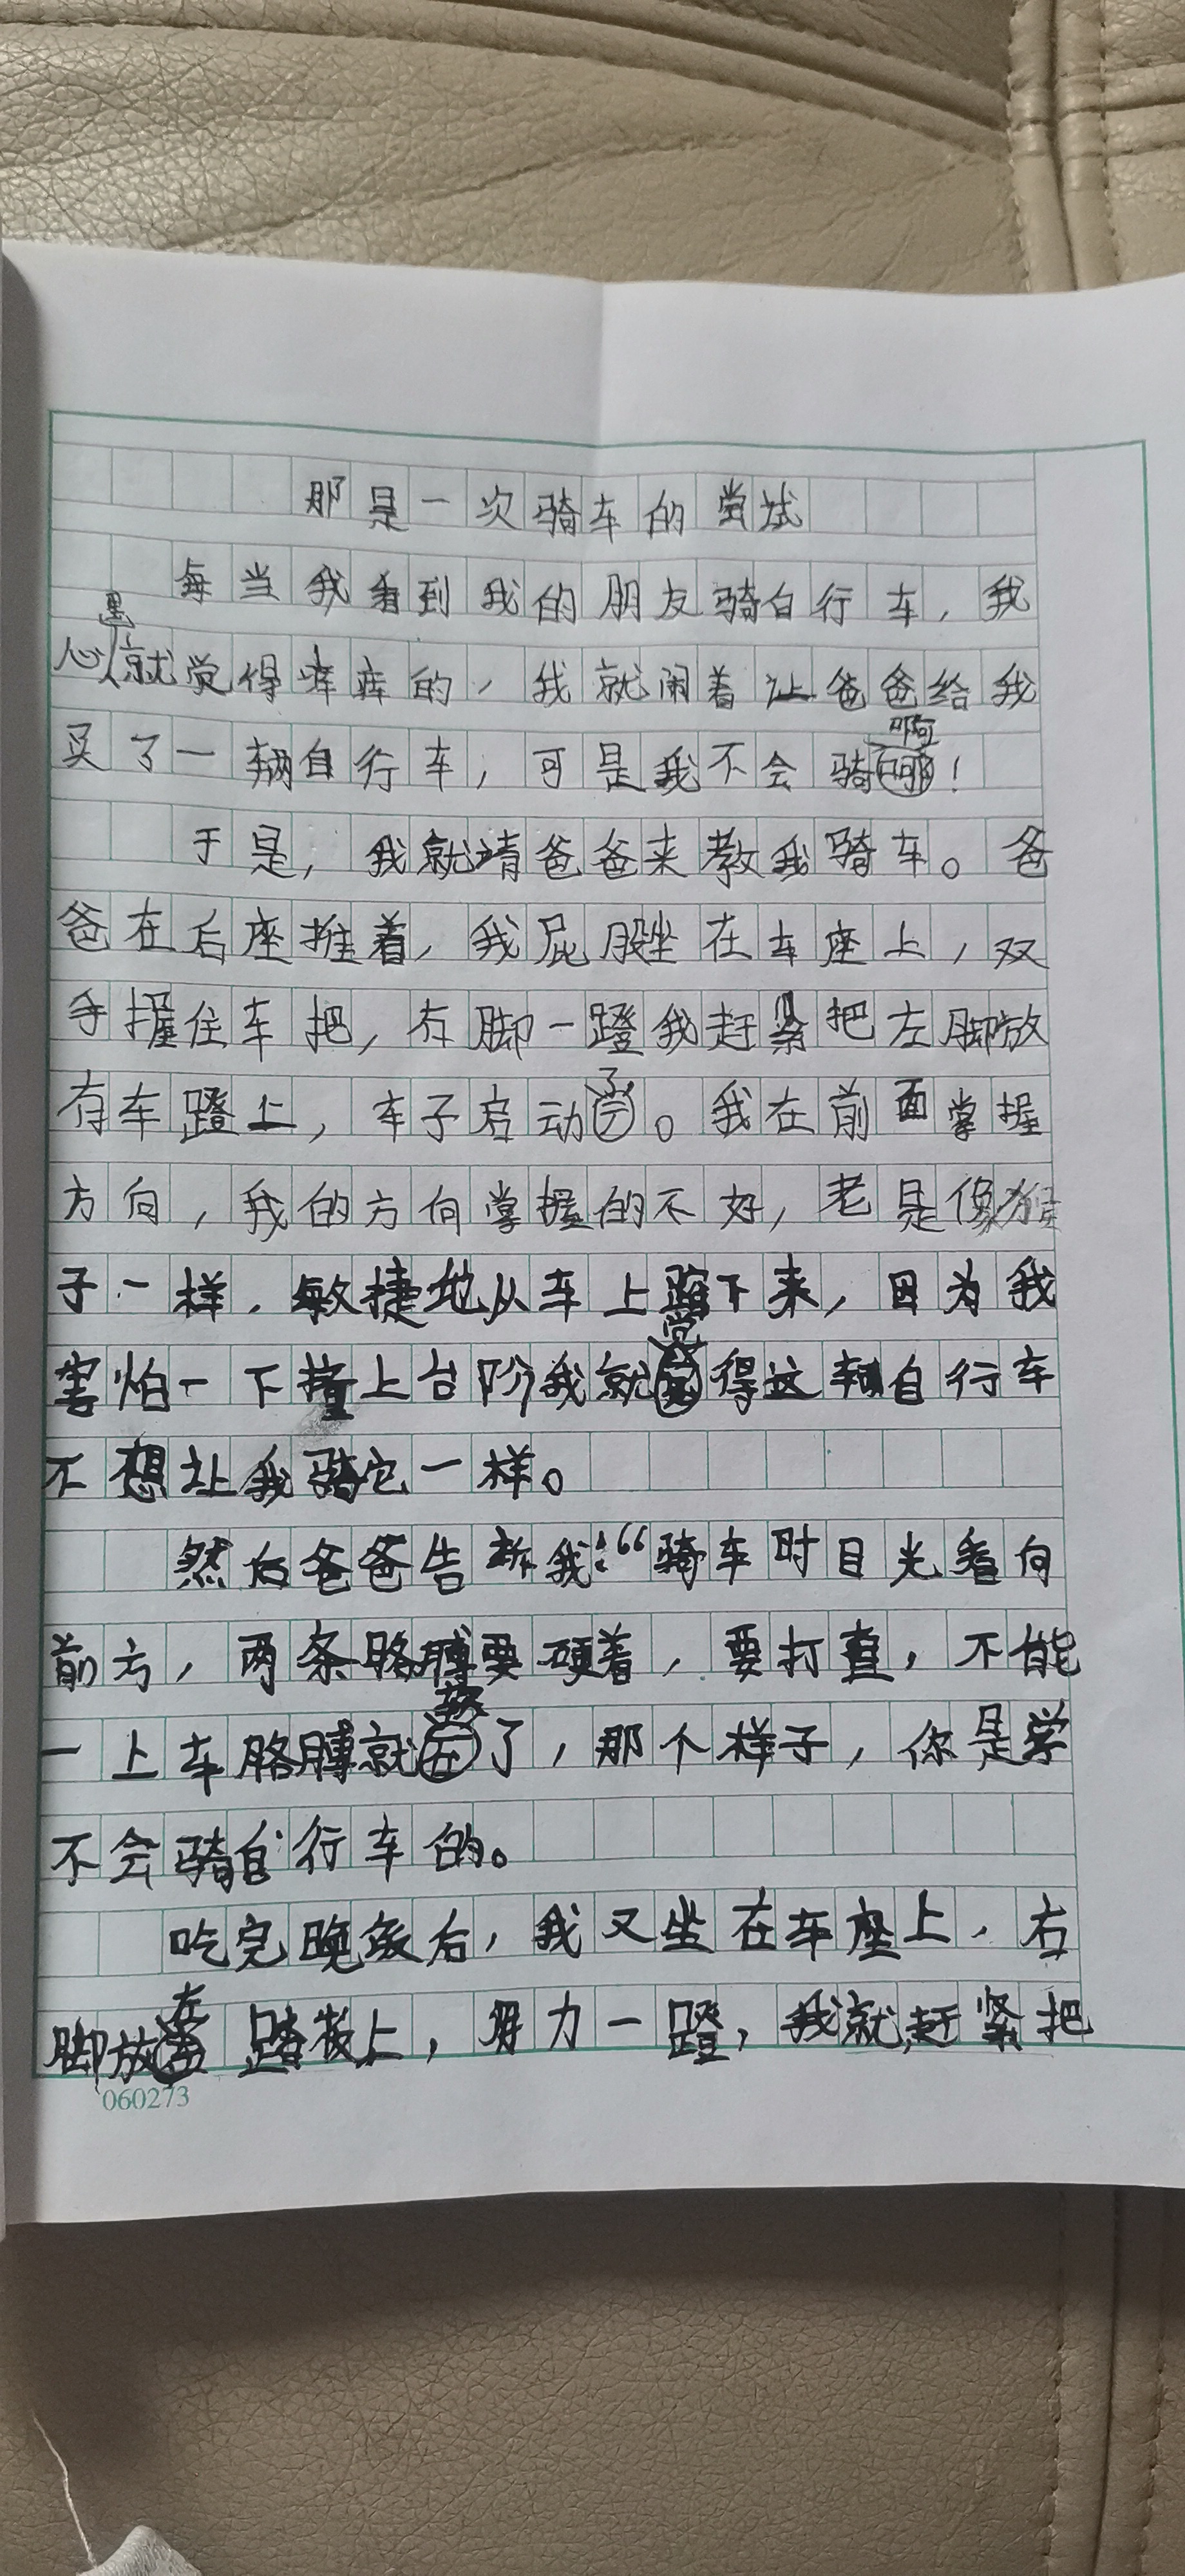 那是一次骑车的尝试
每当我看到我的朋友骑自行车，我
心里就觉得痒痒的，我就闹着让爸爸给我
买了一辆自行车，可是我不会骑啊！
于是，我就请爸爸来教我骑车。爸
爸在后座推着，我屁股坐在车座上，双
手握住车把，右脚一蹬我赶紧把左脚放
在车蹬上，车子启动了。我在前面掌握
方向，我的方向掌握的不好，老是像猴
子一样，敏捷地从车上蹿下来，因为我
害怕一下撞上台阶我就觉得这辆自行车
不想让我骑它一样。
然后爸爸告诉我：“骑车时目光看向
前方，两条胳膊要硬着，要打直，不能
一上车胳膊就了，那个样子，你是学
不会骑自行车的。
吃完晚饭后，我又坐在车座上，右
脚放在踏板上，用力一蹬，我就赶紧把
060273